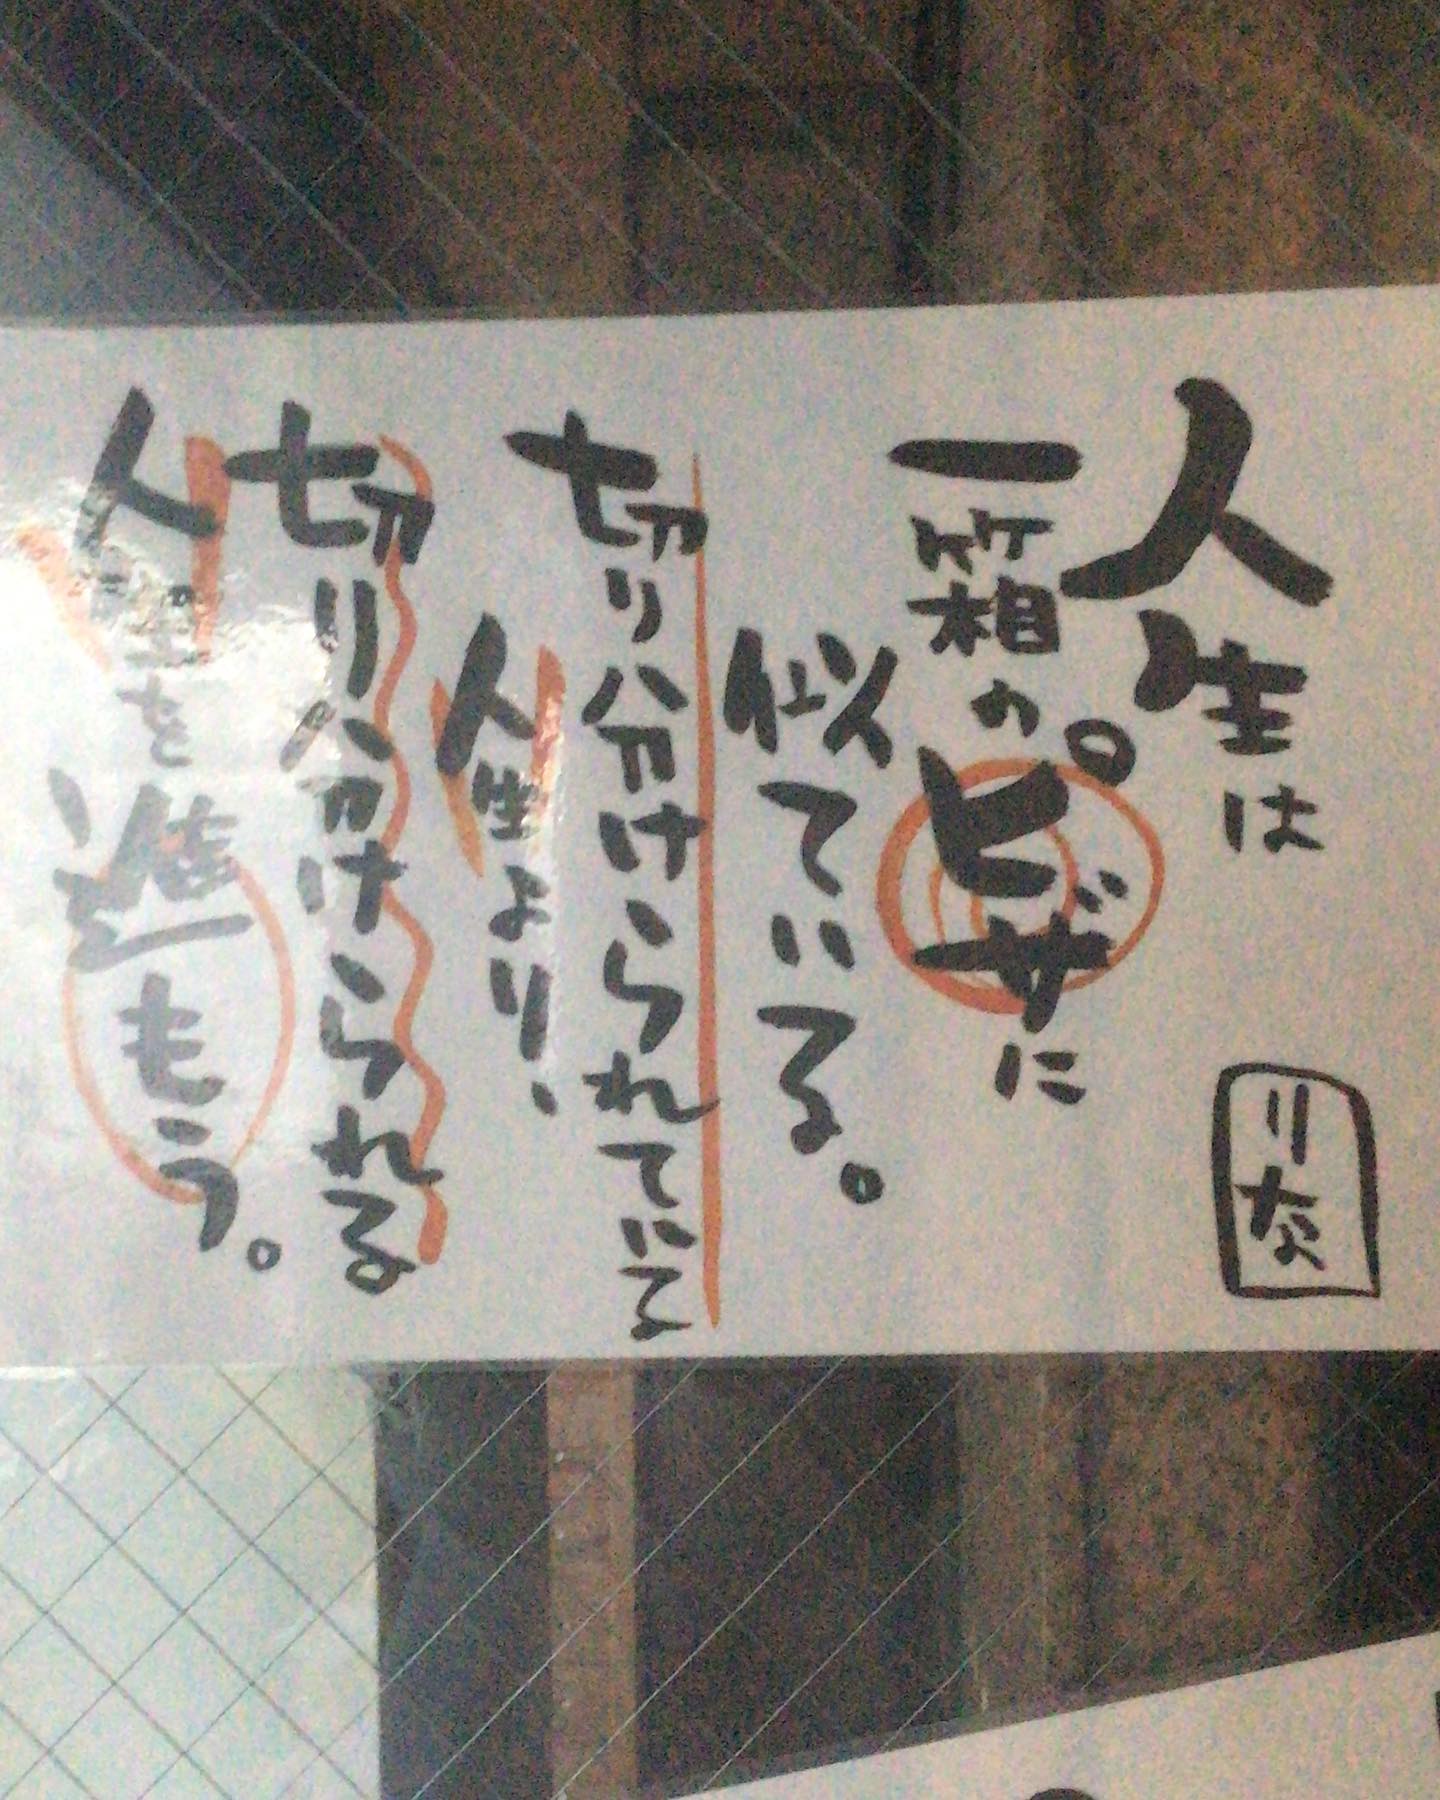 人生は
一箱のピザに
似ている。
切り分けられている
人生より、
切り分けられる
人生を進もう。